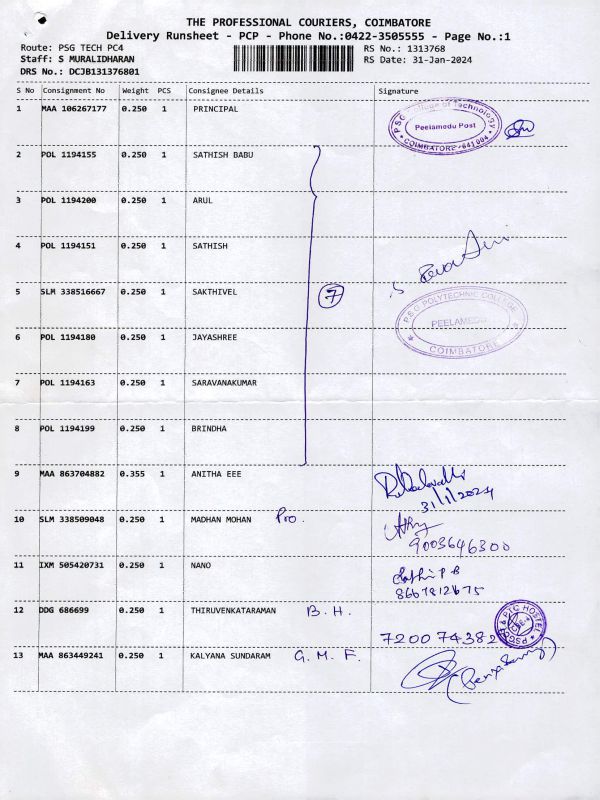 THE PROFESSIONAL COURIERS, COIMBATORE
Delivery Runsheet - PCP - Phone No.:0422-3505555 - Page No.:1
Route: PSG TECH PC4 RS No.: 1313768
Staff: S MURALIDHARAN RS Date: 31-Jan-2024
DRS No.: DCJB131376801
S No Consignment No Weight PCS Consignee Details Signature
1 MAA 106267177 0.250 1 PRINCIPAL
PSG College of Technology
Peelamedu Post
COIMBATORE-641004
2 POL 1194155 0.250 1 SATHISH BABU
3 POL 1194200 0.250 1 ARUL
4 POL 1194151 0.250 1 SATHISH
5 SLM 338516667 0.250 1 SAKTHIVEL
7
P.S.G POLYTECHNIC COLLEGE
PEELAMEDU
COIMBATORE
6 POL 1194180 0.250 1 JAYASHREE
7 POL 1194163 0.250 1 SARAVANAKUMAR
8 POL 1194199 0.250 1 BRINDHA
9 MAA 863704882 0.355 1 ANITHA EEE
31/1/2024
10 SLM 338509048 0.250 1 MADHAN MOHAN Pro.
9003646300
11 IXM 505420731 0.250 1 NANO
8667812675
12 DDG 686699 0.250 1 THIRUVENKATARAMAN B.H.
720074382
HOSTEL
13 MAA 863449241 0.250 1 KALYANA SUNDARAM G.M.F.